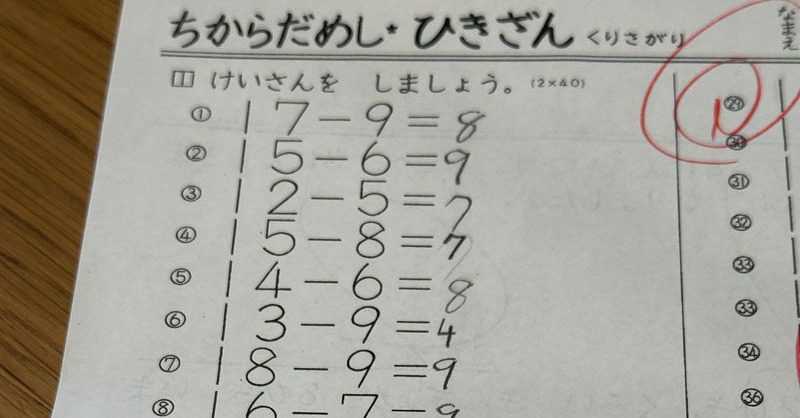 ちからだめし・ひきざん くりさがり
なまえ
1 けいさんを しましょう。(2×40)
① 17-9=8
② 15-6=9
③ 12-5=7
④ 15-8=7
⑤ 14-6=8
⑥ 13-9=4
⑦ 18-9=9
⑧ 16-7=9
㉙
㉚
㉛
㉜
㉝
㉝
㉞
㊱